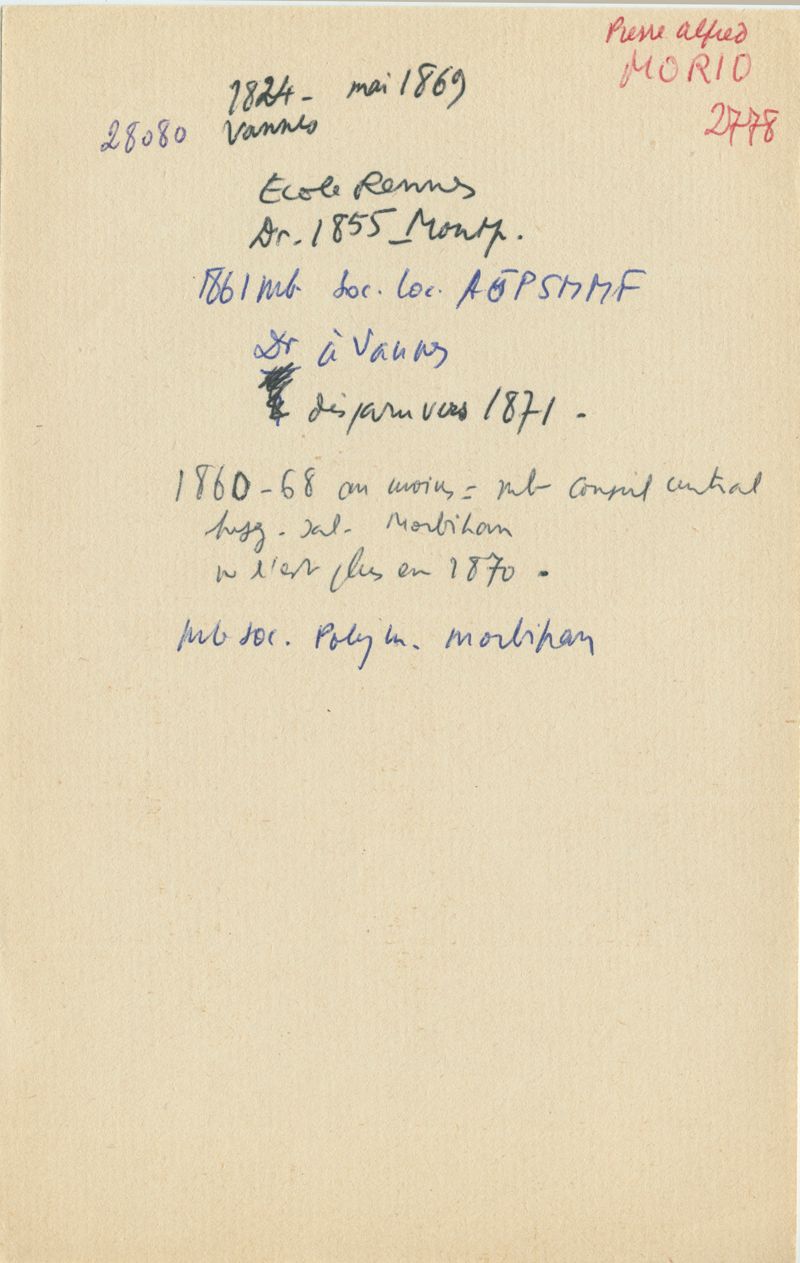 Pierre Alfred
MORIO
2778
1824 - mai 1869
28080 Vannes
Ecole Rennes
Dr. 1855 - Montp.
1861 mb Soc. loc. AGPSMMF
Dr à Vannes
disparu vers 1871 -
1860-68 au moins = mb conseil central
hyg. sal. Morbihan
ne l'est plus en 1870 .
mb soc. Polym. Morbihan